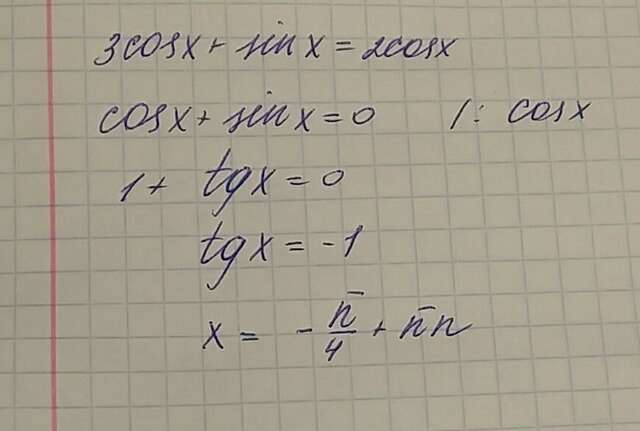 3cosx + sin x = 2cosx
cosx + sin x = 0 /: cosx
1 + tgx = 0
tgx = -1
x = -π/4 + πn